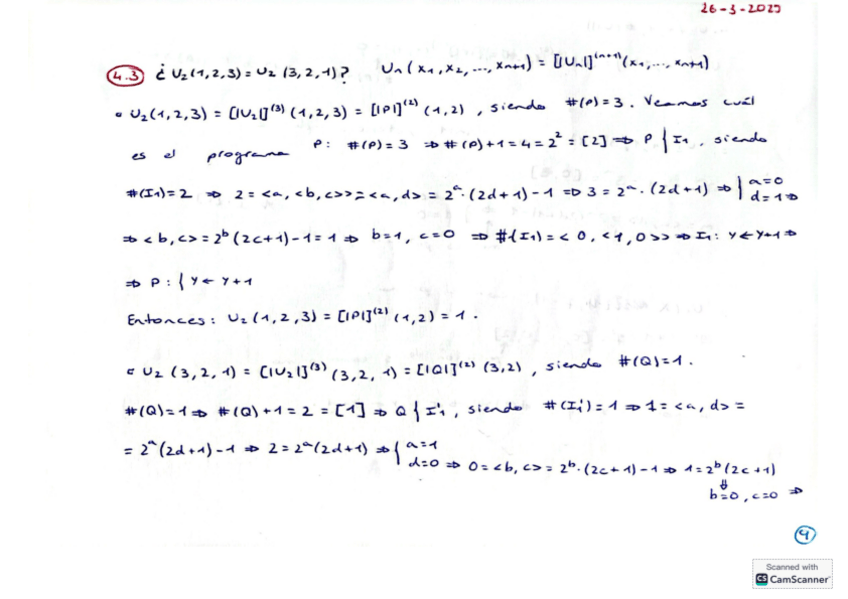 26-3-2025
4.3 ¿ U₂(1,2,3) = U₂(3,2,1)? Uₙ(x₁, x₂, ..., xₙ₊₁) = [|Uₙ|]⁽ⁿ⁺¹⁾(x₁, ..., xₙ₊₁)
• U₂(1,2,3) = [|U₂|]⁽³⁾(1,2,3) = [|P|]⁽²⁾(1,2), siendo #(P)=3. Veamos cuál
es el programa P: #(P)=3 ⇒ #(P)+1=4=2²=[2] ⇒ P { I₁, siendo
#(I₁)=2 ⇒ 2=<a,<b,c>>=<a,d>=2ᵃ·(2d+1)-1 ⇒ 3=2ᵃ·(2d+1) ⇒ { a=0 d=1 ⇒
⇒ <b,c>=2ᵇ(2c+1)-1=1 ⇒ b=1, c=0 ⇒ #(I₁)=<0,<1,0>> ⇒ I₁: Y←Y+1 ⇒
⇒ P: { Y←Y+1
Entonces: U₂(1,2,3) = [|P|]⁽²⁾(1,2) = 1.
• U₂(3,2,1) = [|U₂|]⁽³⁾(3,2,1) = [|Q|]⁽²⁾(3,2), siendo #(Q)=1.
#(Q)=1 ⇒ #(Q)+1=2=[1] ⇒ Q { I₁', siendo #(I₁')=1 ⇒ 1=<a,d>=
=2ᵃ(2d+1)-1 ⇒ 2=2ᵃ(2d+1) ⇒ { a=1 d=0 ⇒ 0=<b,c>=2ᵇ·(2c+1)-1 ⇒ 1=2ᵇ(2c+1)
⇓
b=0, c=0 ⇒
4
Scanned with
CS CamScanner